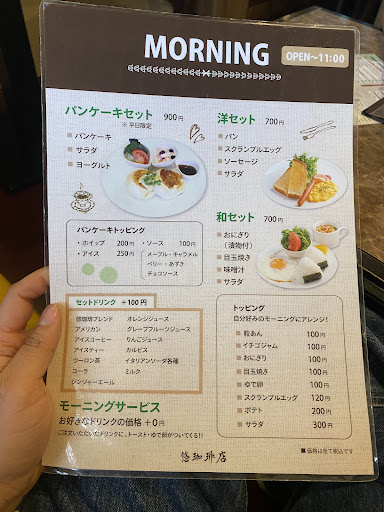 MORNING
OPEN～11:00
パンケーキセット 900円
※平日限定
■ パンケーキ
■ サラダ
■ ヨーグルト
パンケーキトッピング
・ホイップ 200円
・アイス 250円
・ソース 100円
メープル・キャラメル
ベリー・あずき
チョコソース
洋セット 700円
■ パン
■ スクランブルエッグ
■ ソーセージ
■ サラダ
和セット 700円
■ おにぎり
(漬物付)
■ 目玉焼き
■ 味噌汁
■ サラダ
セットドリンク +100円
悠珈琲ブレンド オレンジジュース
アメリカン グレープフルーツジュース
アイスコーヒー りんごジュース
アイスティー カルピス
ウーロン茶 イタリアンソーダ各種
コーラ ミルク
ジンジャーエール
モーニングサービス
お好きなドリンクの価格 +0円
ご注文いただいたドリンクに、トースト・ゆで卵がついてくる!!
トッピング
自分好みのモーニングにアレンジ!
■ 粒あん 100円
■ イチゴジャム 100円
■ おにぎり 100円
■ 目玉焼き 100円
■ ゆで卵 100円
■ スクランブルエッグ 120円
■ ポテト 200円
■ サラダ 300円
■ 価格は全て税込です
悠珈琲店